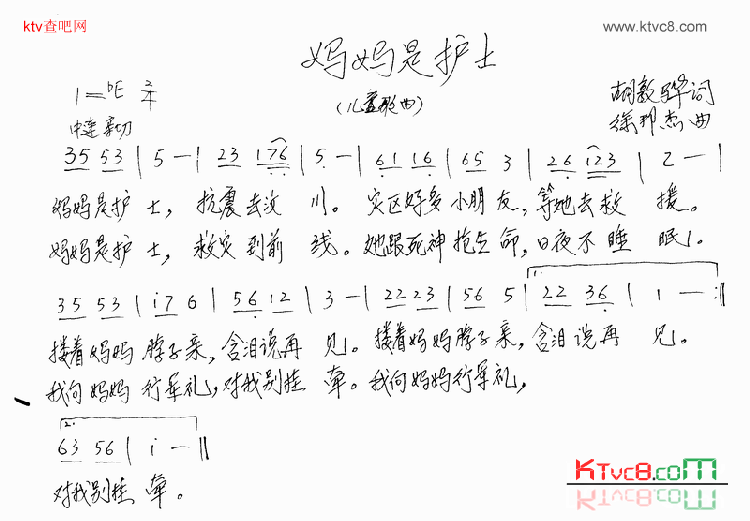 ktv查吧网
www.ktvc8.com
妈妈是护士
(儿童歌曲)
1=bE 2/4
胡敦骅词
中速 亲切
徐邦杰曲
35 53 | 5 - | 23 176 | 5 - | 61 16 | 65 3 | 26 123 | 2 - |
妈妈是护士，抗震去汶川。灾区好多小朋友，等她去救援。
妈妈是护士，救灾到前线。她跟死神抢生命，日夜不睡眠。
35 53 | i76 | 56 12 | 3 - | 22 23 | 56 5 | 1. 22 36 | 1 - :||
搂着妈妈脖子亲，含泪说再见。搂着妈妈脖子亲，含泪说再见。
我向妈妈行军礼，对我别挂牵。我向妈妈行军礼，
2. 63 56 | i - ||
对我别挂牵。
KTVC8.COM